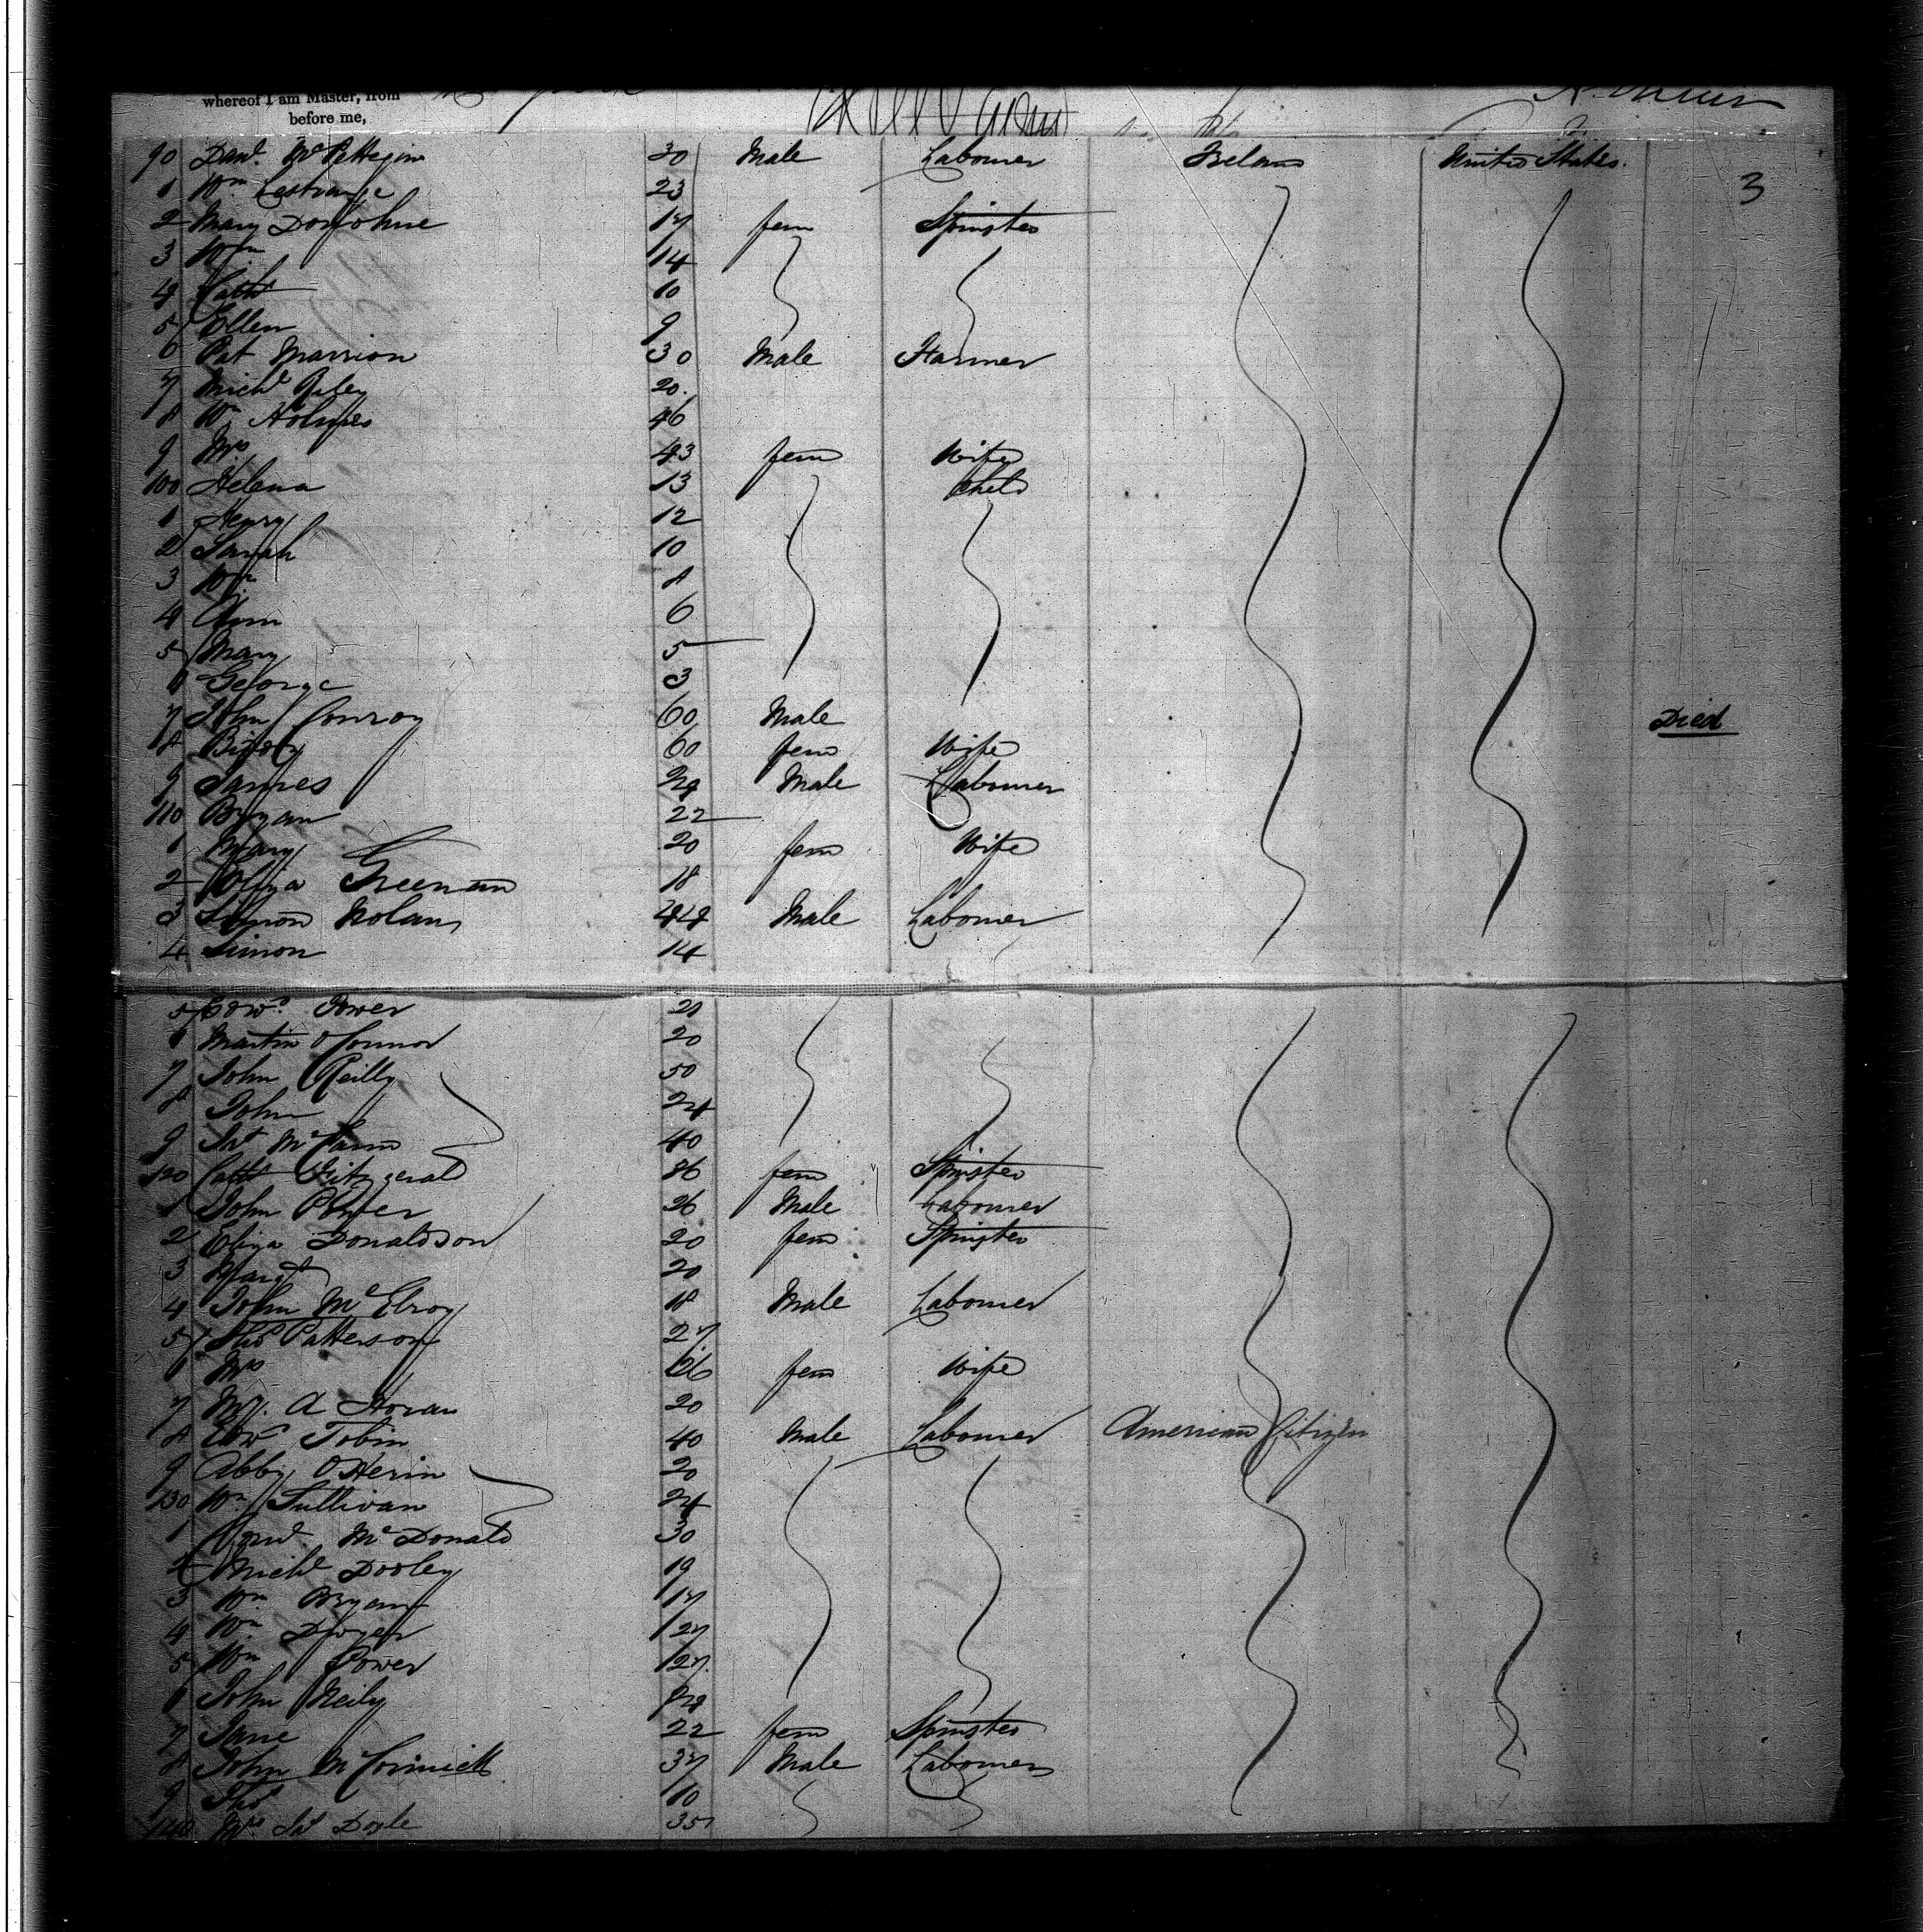 whereof I am Master, from
before me,
90 Danl. McPettegin 30 Male Labourer Ireland United States.
1 Wm Lestrange 23 3
2 Mary Donohue 17 fem Spinster
3 Wm 14
4 Cath 10
5 Ellen 9
6 Pat Marrion 30 Male Farmer
7 Michl Riley 20.
8 Wm Holmes 46
9 Mrs 43 fem Wife
100 Helena 13 Child
1 Henry 12
2 Sarah 10
3 Wm 8
4 Ann 6
5 Mary 5
6 George 3
7 John Conroy 60 Male Died
8 Biddy 60 fem Wife
9 James 24 Male Labourer
110 Bryan 22
1 Mary 20 fem Wife
2 Eliza Greenan 18
3 Simon Nolan 44 Male Labourer
4 Simon 14
5 Edwd. Power 20
6 Martin O Connor 20
7 John Reilly 50
8 John 24
9 McCann 40
120 Cath Fitzgerald 36 fem Spinster
1 John Porter 26 Male Labourer
2 Eliza Donaldson 20 fem Spinster
3 Margt 20
4 John McElroy 18 Male Labourer
5 Thos Patterson 27
6 Mrs 26 fem Wife
7 A Horan 20
8 Edwd Tobin 40 Male Labourer American Citizen
9 Abby O Herin 20
130 Wm Sullivan 24
1 McDonald 30
2 Michl Dooley 19
3 Wm Bryan 17
4 Wm Dwyer 27
5 Wm Power 27.
6 John Neily 24
7 Jane 22 fem Spinster
8 John McCormick 37 Male Labourer
9 Thos 10
140 Mrs Doyle 35